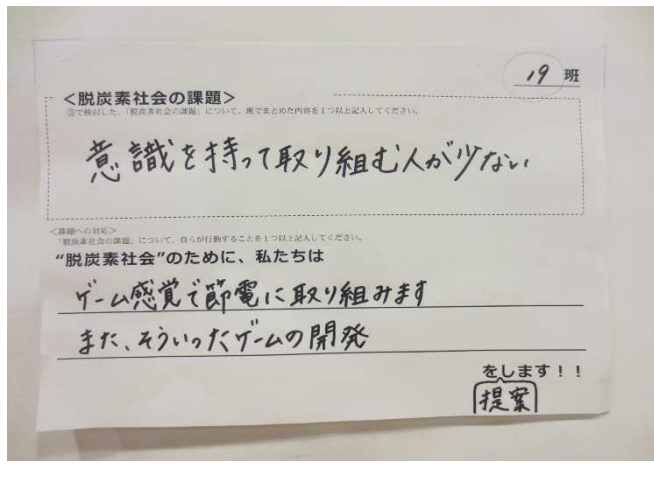 19 班
<脱炭素社会の課題>
③で検討した、「脱炭素社会の課題」について、班でまとめた内容を1つ以上記入してください。
意識を持って取り組む人が少ない
<課題への対応>
「脱炭素社会の課題」について、自らが行動することを1つ以上記入してください。
“脱炭素社会”のために、私たちは
ゲーム感覚で節電に取り組みます
また、そういったゲームの開発
をします！！
提案